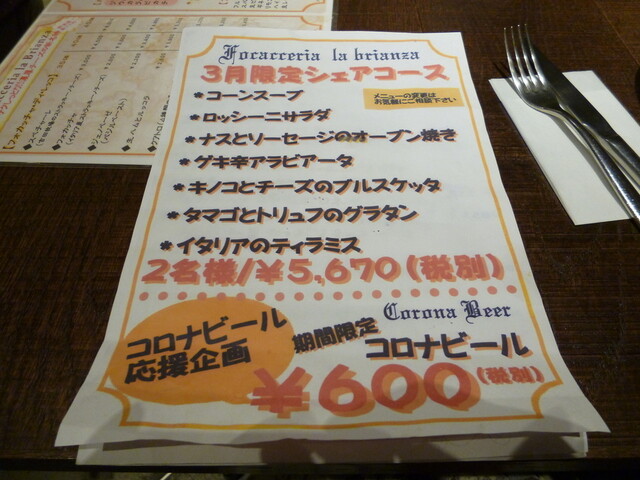 Focacceria la brianza
3月限定シェアコース
*コーンスープ
メニューの変更は
お気軽にご相談下さい
*ロッシーニサラダ
*ナスとソーセージのオーブン焼き
*ゲキ辛アラビアータ
*キノコとチーズのブルスケッタ
*タマゴとトリュフのグラタン
*イタリアのティラミス
2名様/¥5,670(税別)
Corona Beer
コロナビール
応援企画
期間限定
コロナビール
¥600(税別)